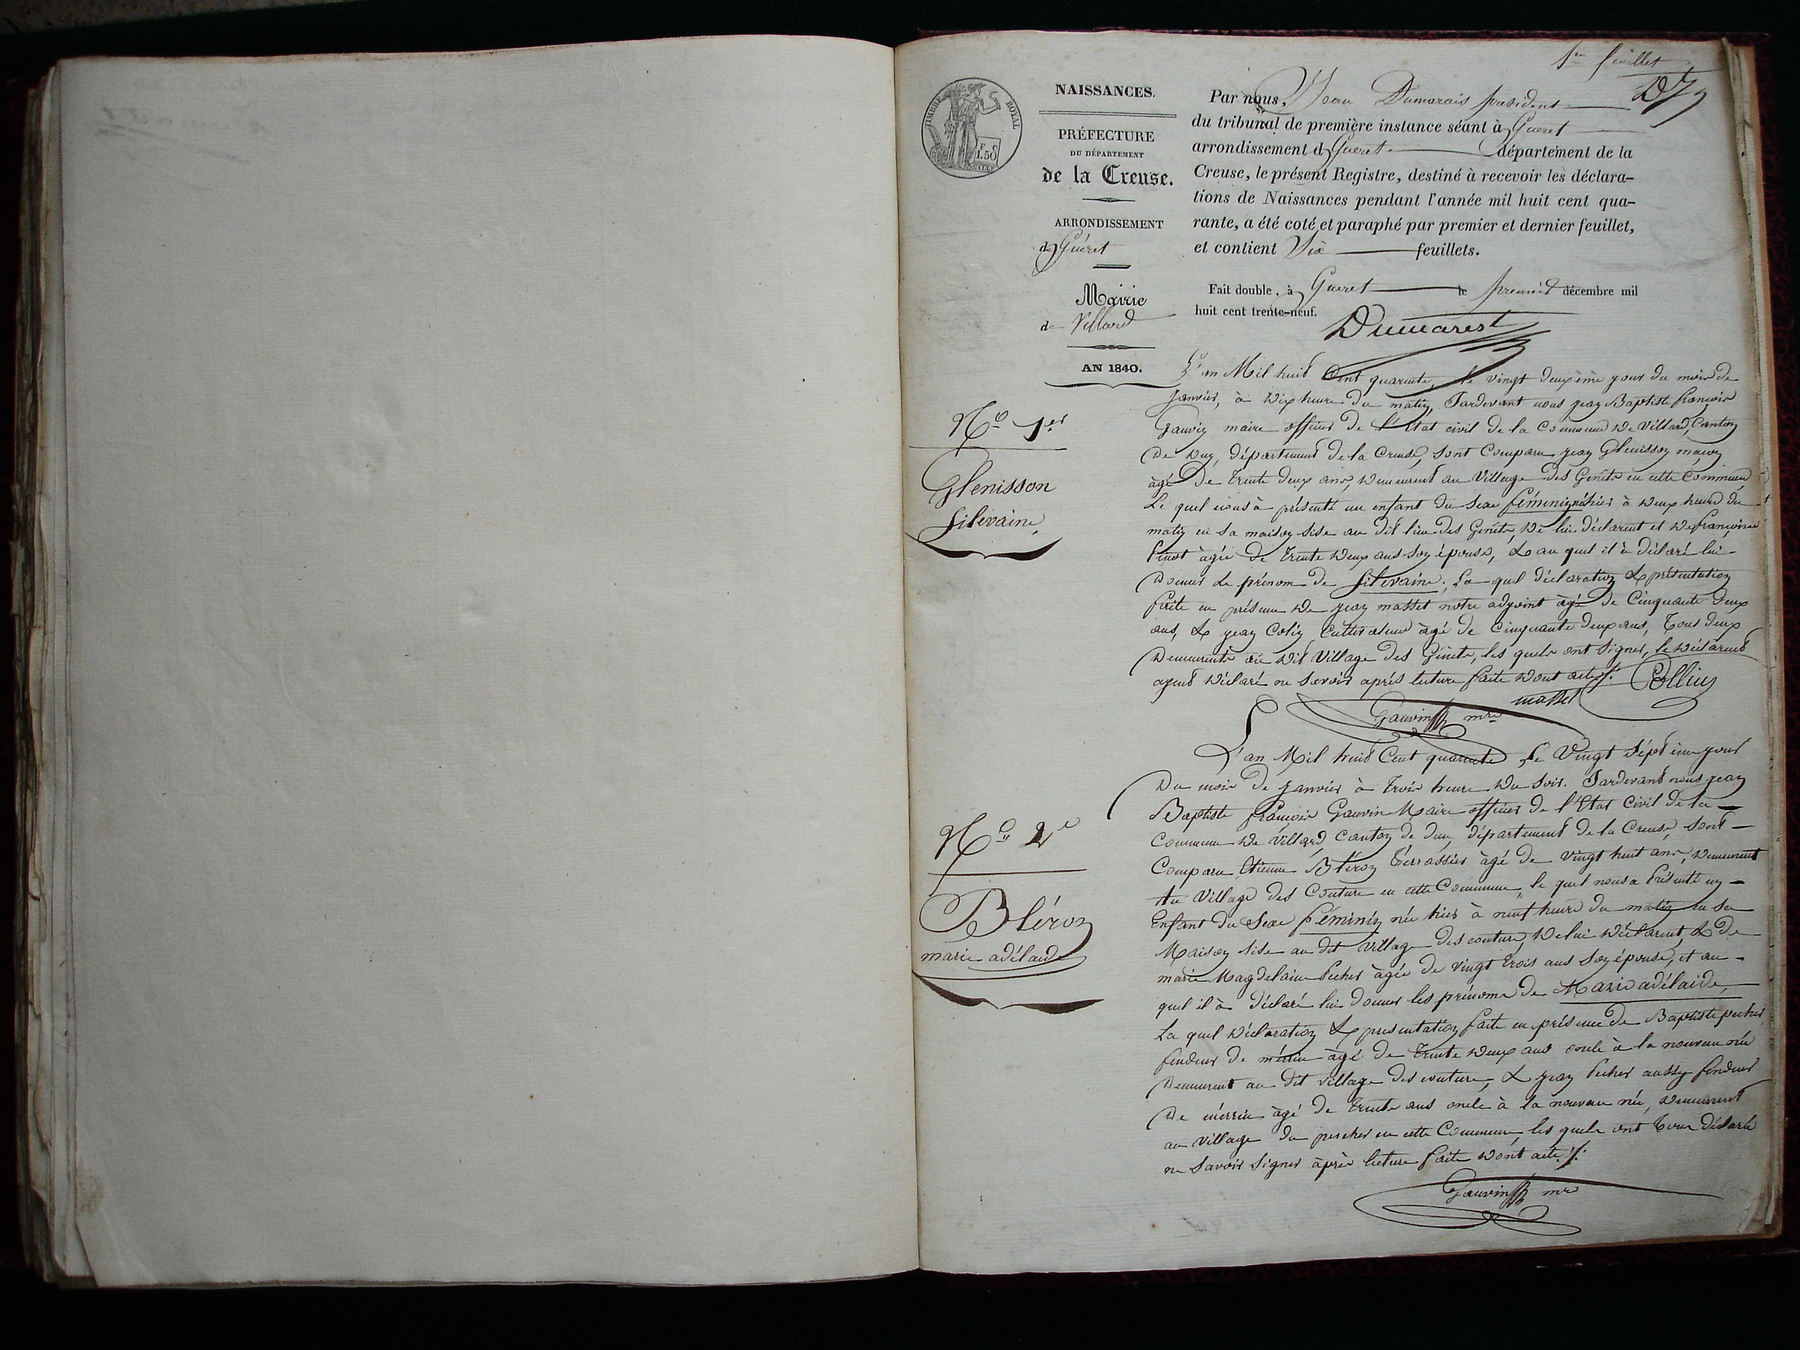 1er feuillet
TIMBRE ROYAL
1.50
NAISSANCES.
PRÉFECTURE
DU DÉPARTEMENT
de la Creuse.
ARRONDISSEMENT
d Guéret
Mairie
de Villard
AN 1840.
Par nous, Jean Dumarais président
du tribunal de première instance séant à Gueret
arrondissement d Gueret département de la
Creuse, le présent Registre, destiné à recevoir les déclara-
tions de Naissances pendant l'année mil huit cent qua-
rante, a été coté et paraphé par premier et dernier feuillet,
et contient Six feuillets.
Fait double, à Gueret le premier décembre mil
huit cent trente-neuf.
Dumarest
No 1er
Glenisson
Silevaine
L'an Mil huit Cent quarante, le vingt deuxième jour du mois de
Janvier, à Dix heure du matin, Pardevant nous jean Baptiste françois
Gauvin maire officier de l'Etat civil de la Commune de Villard, Canton
De Dun, département de la Creuse, sont Comparu jean Glenisson maçon
âgé De trente deux ans, demeurant au Village des Genête en cette Commune
Le quel nous à présenté un enfant du sexe féminin, né hier à deux heure du
matin en sa maison sise au dit lieu des Genête, De lui déclarant et De françoise
Pinot âgée de trente deux ans son épouse, & au quel il à déclaré lui
Donner Le prénom de Silevaine; La quel déclaration & présentation
faite en présence De jean masset notre adjoint âgé de Cinquante deux
ans, & jean Colin Cultivateur âgé de cinquante deux ans, tous deux
Demeurents au dit Village des Genête, les quels ont signer, le déclarent
ayent déclaré ne savoir après lecture faite Dont acte ./.
Collin
masset
Gauvin mre
No 2e
Bléron
marie adélaide
L'an Mil huit Cent quarante, le Vingt Septième jour
Du mois de janvier à trois heure Du soir. Pardevant nous jean
Baptiste françois Gauvin Maire officier de l'Etat Civil de la
Commune De Villard, canton de dun, département de la Creuse, sont
Comparu Etienne Bléron terrassier âgé de vingt huit ans, Demeurent
Au Village des Couture en cette Commune, le quel nous a présenté un
Enfant du Sexe féminin née hier à neuf heure du matin en sa
Maison sise au dit village des couture, De lui déclarent, & de
marie Magdelaine Pecher âgée de vingt trois ans son épouse, et au
quel il à déclaré lui donner les prénoms de Marie adélaide,
La quel déclaration & presentation faite en présence de Baptiste pecher
fendeur de mérrin âgé de trente deux ans oncle à la nouveau née
Demeurent au dit village des couture, & jean Pecher aussy fendeur
De mérrin âgé de trente ans oncle à la nouveau née, demeurent
au village du pescher en cette Commune, les quels ont tous déclaré
ne savoir signer après lecture faite Dont acte ./.
Gauvin mre